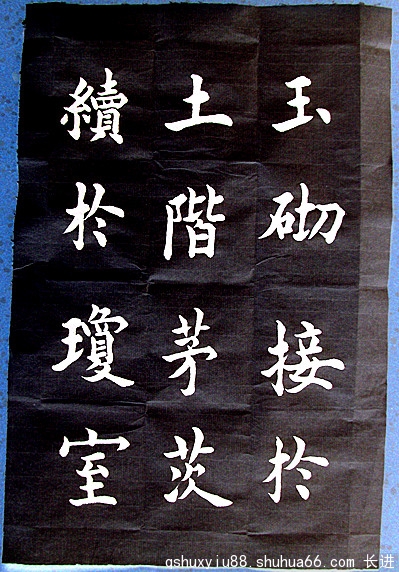 玉砌接於
土階茅茨
續於瓊室
qshuxyju88.shuhua66.com 长进